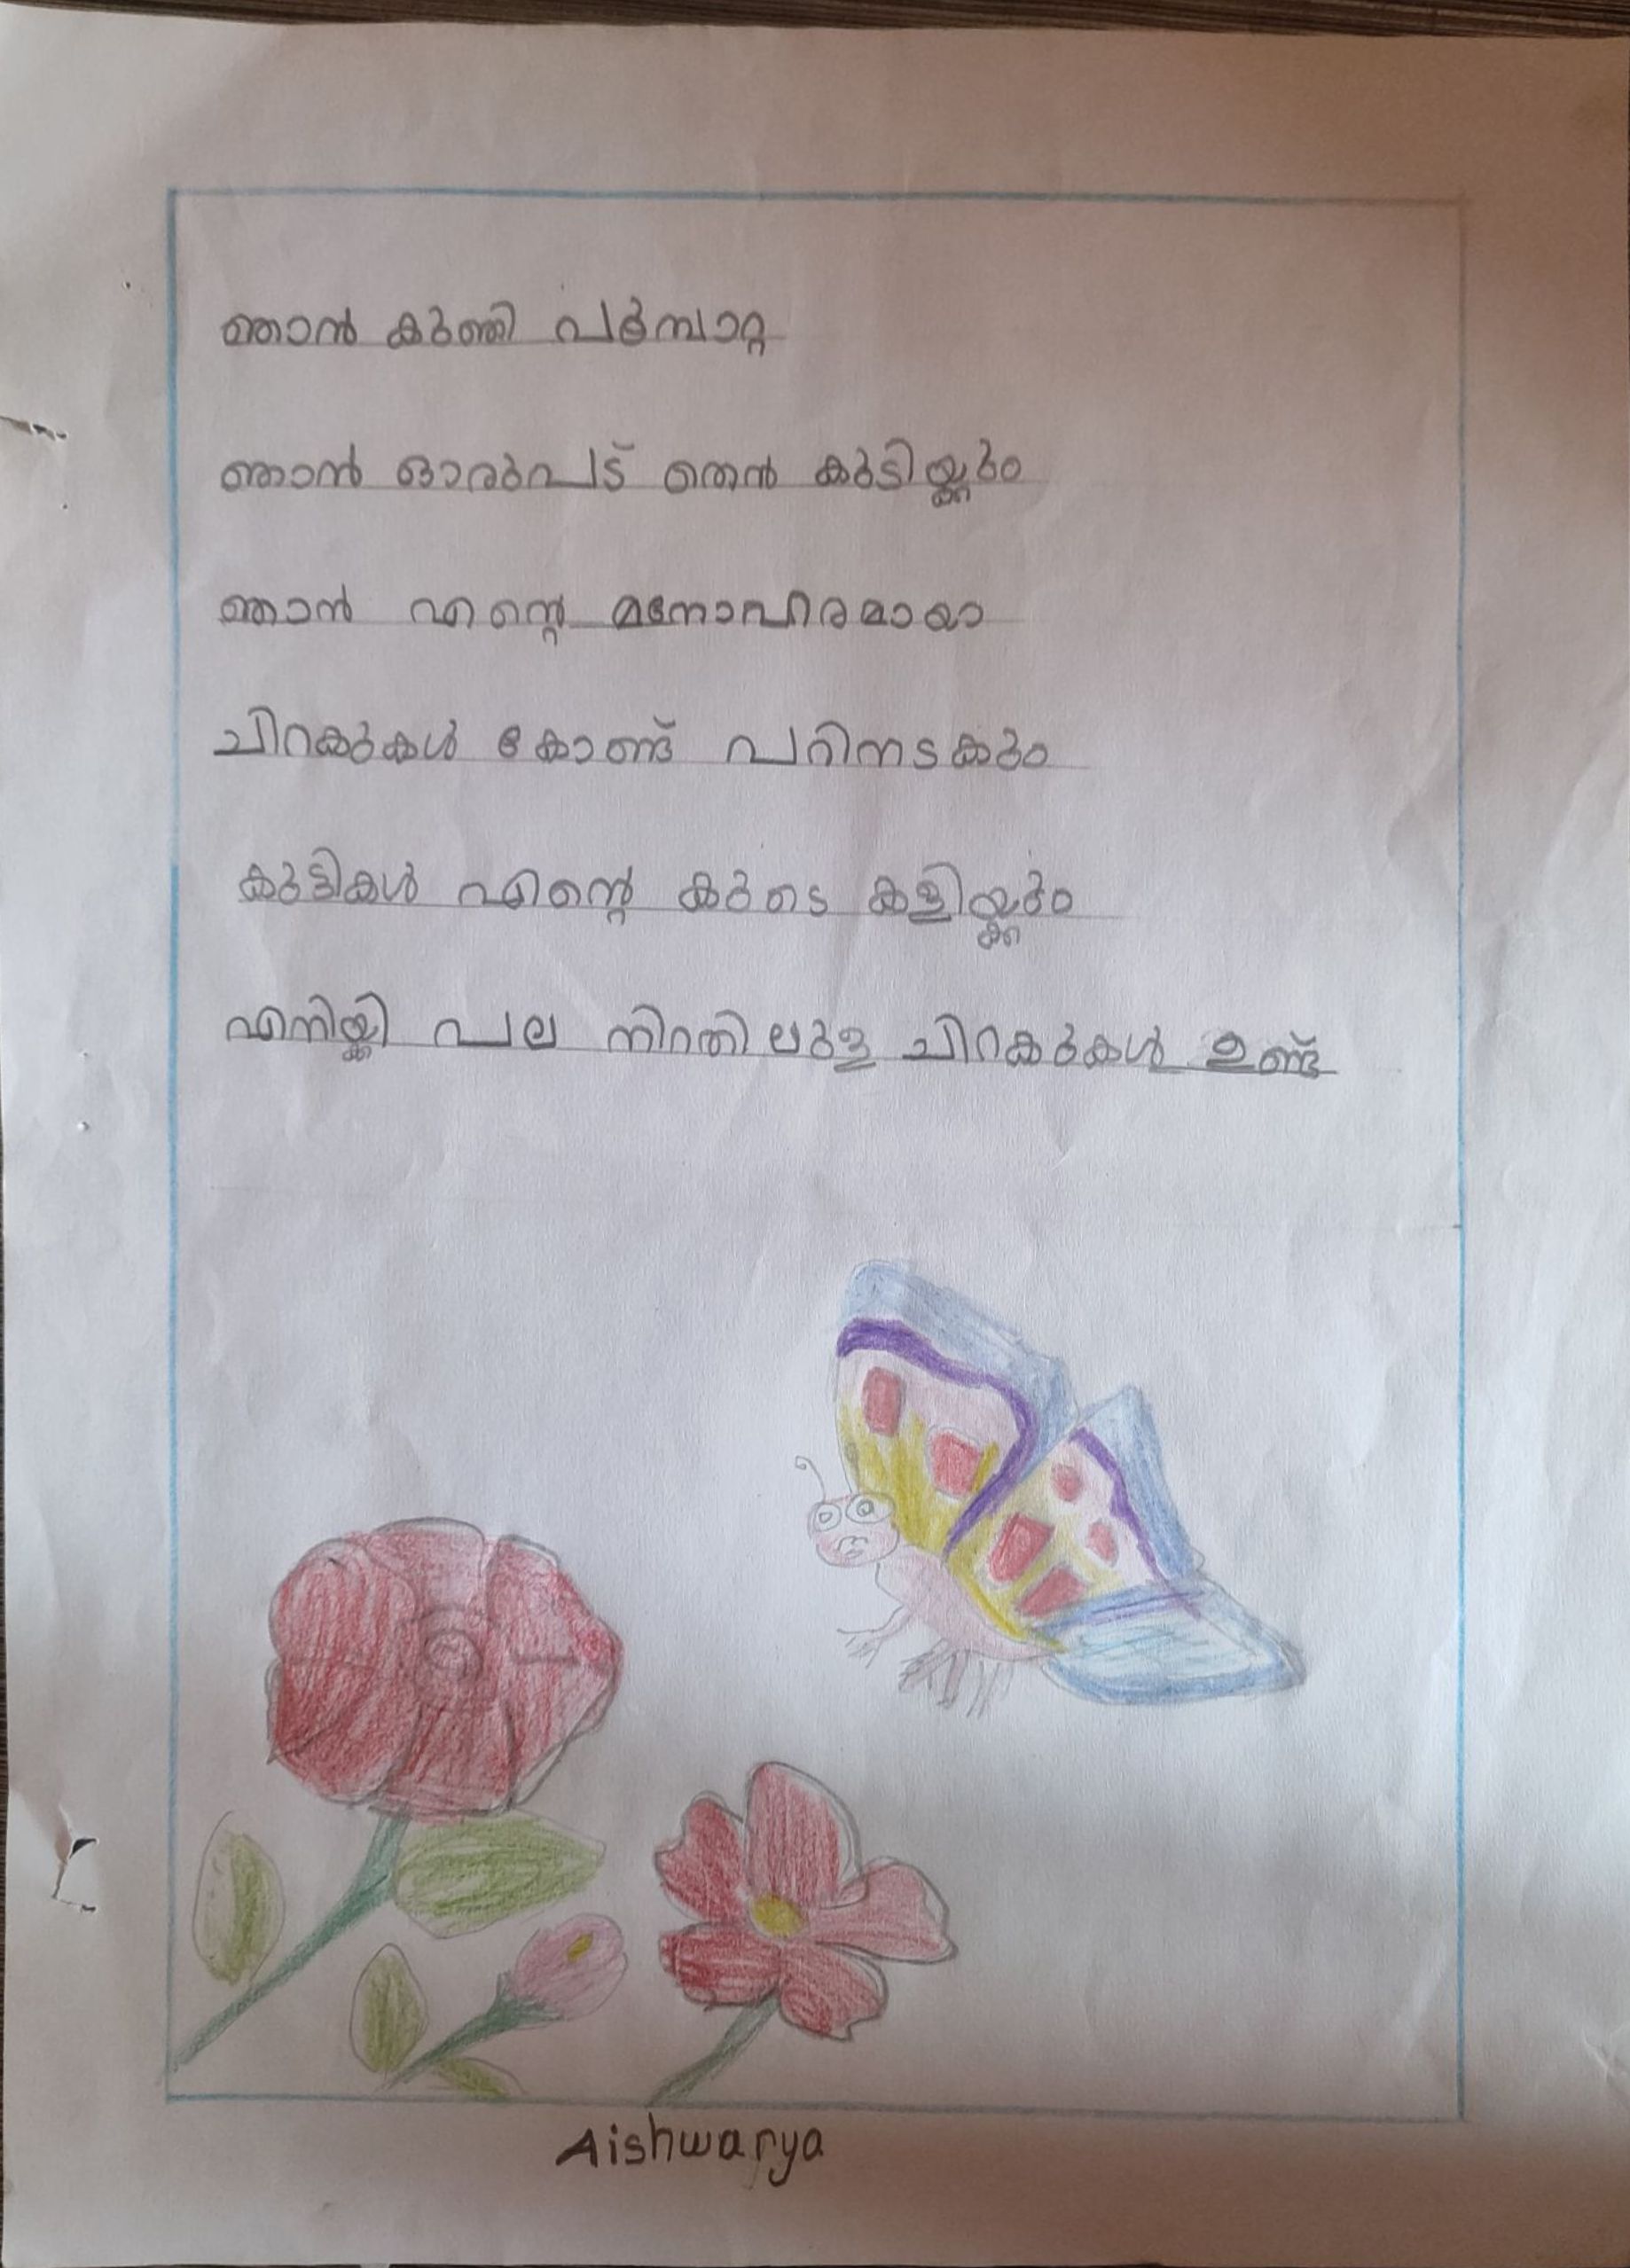 ഞാൻ കുഞ്ഞി പൂമ്പാറ്റ
ഞാൻ ഓരുപട് തെൻ കുടിയ്ക്കും
ഞാൻ എന്റെ മനോഹരമായാ
ചിറകുകൾ കോണ്ട് പറിനടകും
കുട്ടികൾ എന്റെ കുടെ കളിയ്ക്കും
എനിയ്ക്കി പല നിറതിലുള ചിറകുകൾ ഉണ്ട്
Aishwarya